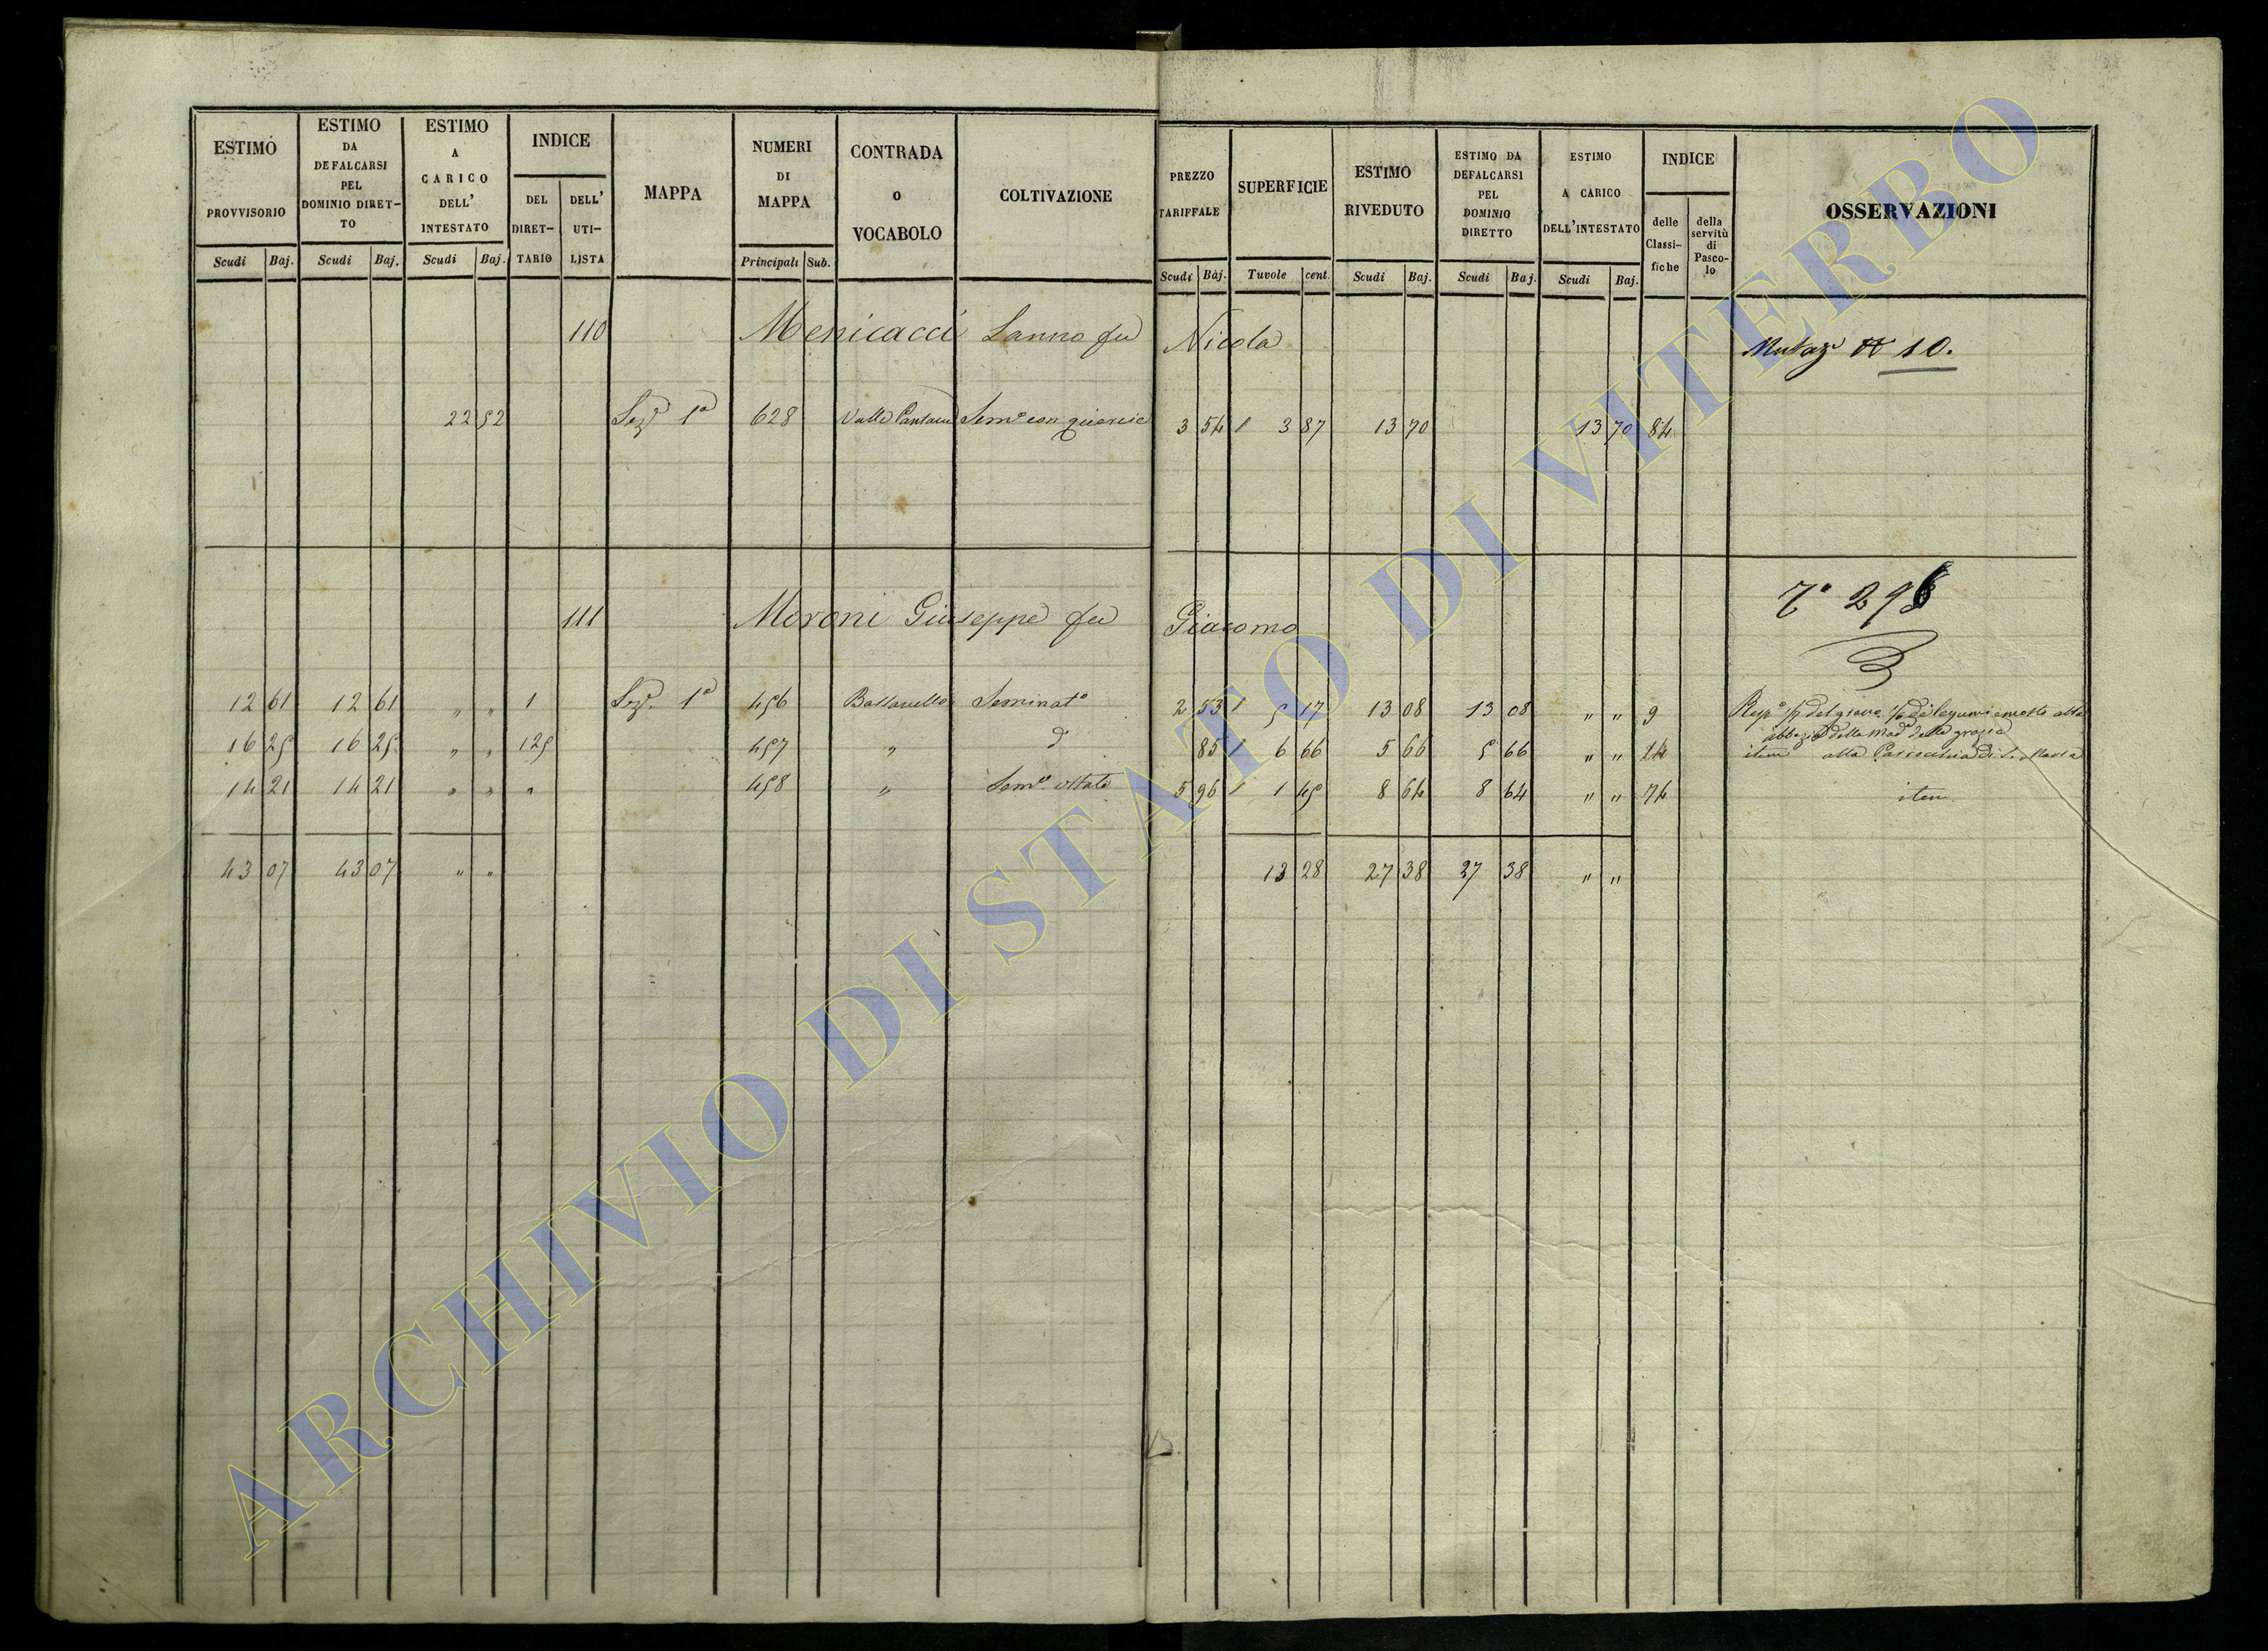 ESTIMO PROVVISORIO
ESTIMO DA DEFALCARSI PEL DOMINIO DIRET-TO
ESTIMO A CARICO DELL' INTESTATO
INDICE
DEL DIRET-TARIO
DELL' UTI-LISTA
MAPPA
NUMERI DI MAPPA
CONTRADA o VOCABOLO
COLTIVAZIONE
PREZZO TARIFFALE
SUPERFICIE
ESTIMO RIVEDUTO
ESTIMO DA DEFALCARSI PEL DOMINIO DIRETTO
ESTIMO A CARICO DELL'INTESTATO
INDICE
delle Classi-fiche
della servitù di Pasco-lo
OSSERVAZIONI
Scudi Baj. Scudi Baj. Scudi Baj. Principali Sub. Scudi Baj. Tavole cent. Scudi Baj. Scudi Baj. Scudi Baj.
110 Menicacci Sanno fu Nicola Mutaz e N 10.
22 52 Sez.e 1a 628 Valle Sem.o con quercie 3 54 1 3 87 13 70 13 70 84
111 Moroni Giuseppe fu Giacomo
To 298
12 61 12 61 " " 1 Sez.e 1a 456 Bassanello Seminato 2 53 1 5 17 13 08 13 08 " " 9 Rispe 1/7 del grano 1/7 de legumi e mosto alla
abbazia della Mada delle grazie
16 25 16 25 " " 125 457 " d 85 1 6 66 5 66 5 66 " " 24 item alla Parrocchia di S. Maria
14 21 14 21 " " " 458 " Sem.o vitato 5 96 1 1 45 8 64 8 64 " " 74 item
43 07 43 07 " " 13 28 27 38 27 38 " "
ARCHIVIO DI STATO DI VITERBO